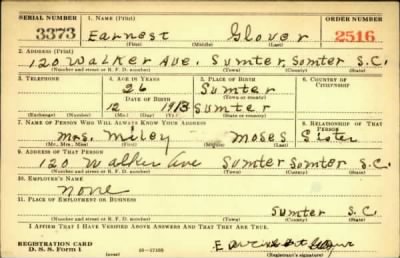 SERIAL NUMBER 1. NAME (Print) ORDER NUMBER
3373 Earnest Glover 2516
(First) (Middle) (Last)
2. ADDRESS (Print)
120 Walker Ave. Sumter, Somter S.C.
(Number and street or R. F. D. number) (Town) (County) (State)
3. TELEPHONE 4. AGE IN YEARS 5. PLACE OF BIRTH 6. COUNTRY OF CITIZENSHIP
26 Sumter
DATE OF BIRTH (Town or county)
12 1913 Sumter
(Exchange) (Number) (Mo.) (Day) (Yr.) (State or country)
7. NAME OF PERSON WHO WILL ALWAYS KNOW YOUR ADDRESS 8. RELATIONSHIP OF THAT PERSON
Mrs. Miley Moses Sister
(Mr., Mrs., Miss) (First) (Middle) (Last)
9. ADDRESS OF THAT PERSON
120 Walker Ave Sumter Somter S.C.
(Number and street or R. F. D. number) (Town) (County) (State)
10. EMPLOYER'S NAME
none
11. PLACE OF EMPLOYMENT OR BUSINESS
Sumter S.C.
(Number and street or R. F. D. number) (Town) (County) (State)
I AFFIRM THAT I HAVE VERIFIED ABOVE ANSWERS AND THAT THEY ARE TRUE.
REGISTRATION CARD
D. S. S. Form 1 (over) (Registrant's signature)